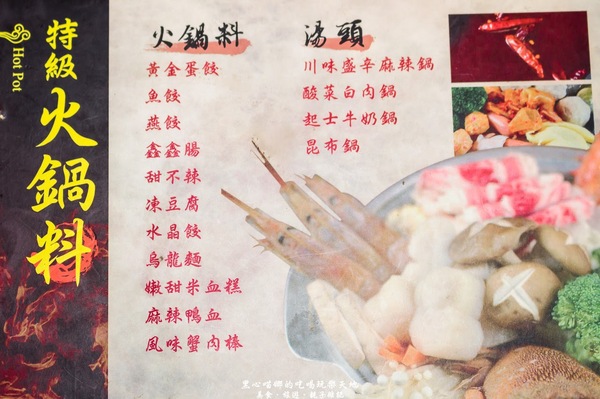 特級火鍋料
Hot Pot
火鍋料
黃金蛋餃
魚餃
燕餃
鑫鑫腸
甜不辣
凍豆腐
水晶餃
烏龍麵
嫩甜米血糕
麻辣鴨血
風味蟹肉棒
湯頭
川味盛辛麻辣鍋
酸菜白肉鍋
起士牛奶鍋
昆布鍋
美食‧旅遊‧親子雜記